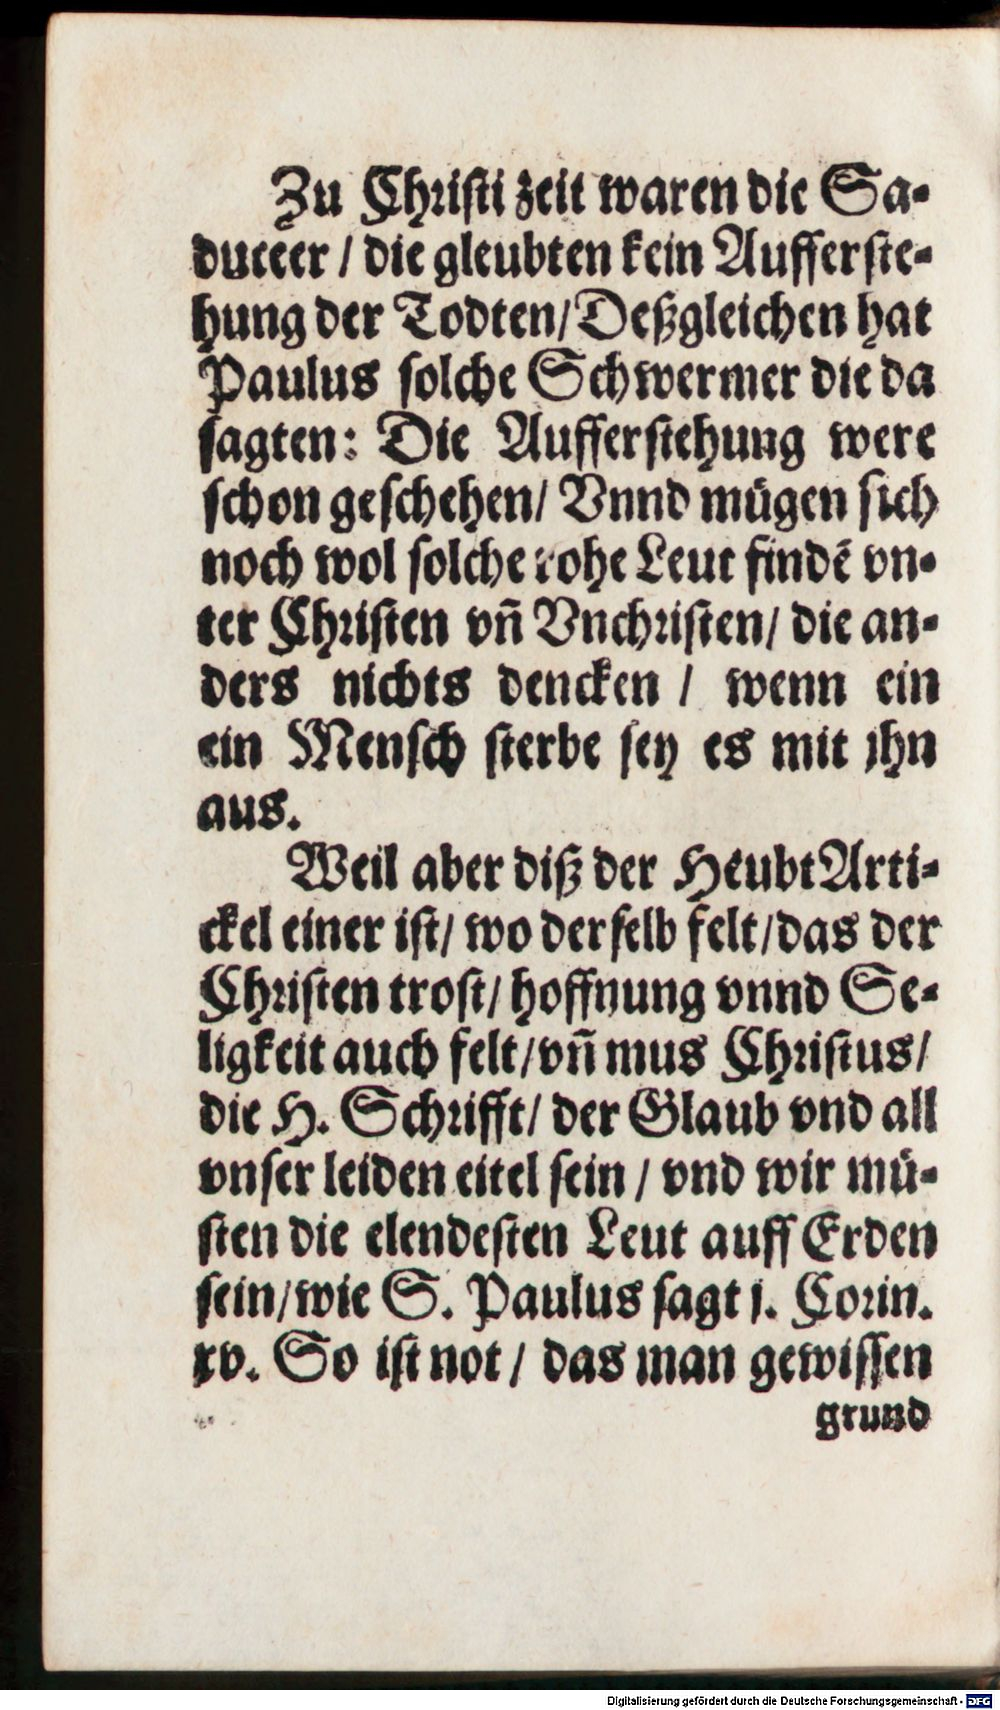 Zu Chriſti zeit waren die Sa-
duceer / die gleubten kein Aufferſte-
hung der Todten/ Deßgleichen hat
Paulus ſolche Schwermer die da
ſagten: Die Aufferſtehung were
ſchon geſchehen/ Vnnd mügen ſich
noch wol ſolche rohe Leut findē vn-
ter Chriſten vñ Vnchriſten/ die an-
ders nichts dencken / wenn ein
ein Menſch ſterbe ſey es mit jhn
aus.
Weil aber diß der HeubtArti-
ckel einer iſt/ wo derſelb felt/ das der
Chriſten troſt/ hoffnung vnnd Se-
ligkeit auch felt/ vñ mus Chriſtus/
die H. Schrifft/ der Glaub vnd all
vnſer leiden eitel ſein / vnd wir mü-
ſten die elendeſten Leut auff Erden
ſein/ wie S. Paulus ſagt j. Corin.
xv. So iſt not / das man gewiſſen
grund
Digitalisierung gefördert durch die Deutsche Forschungsgemeinschaft - DFG